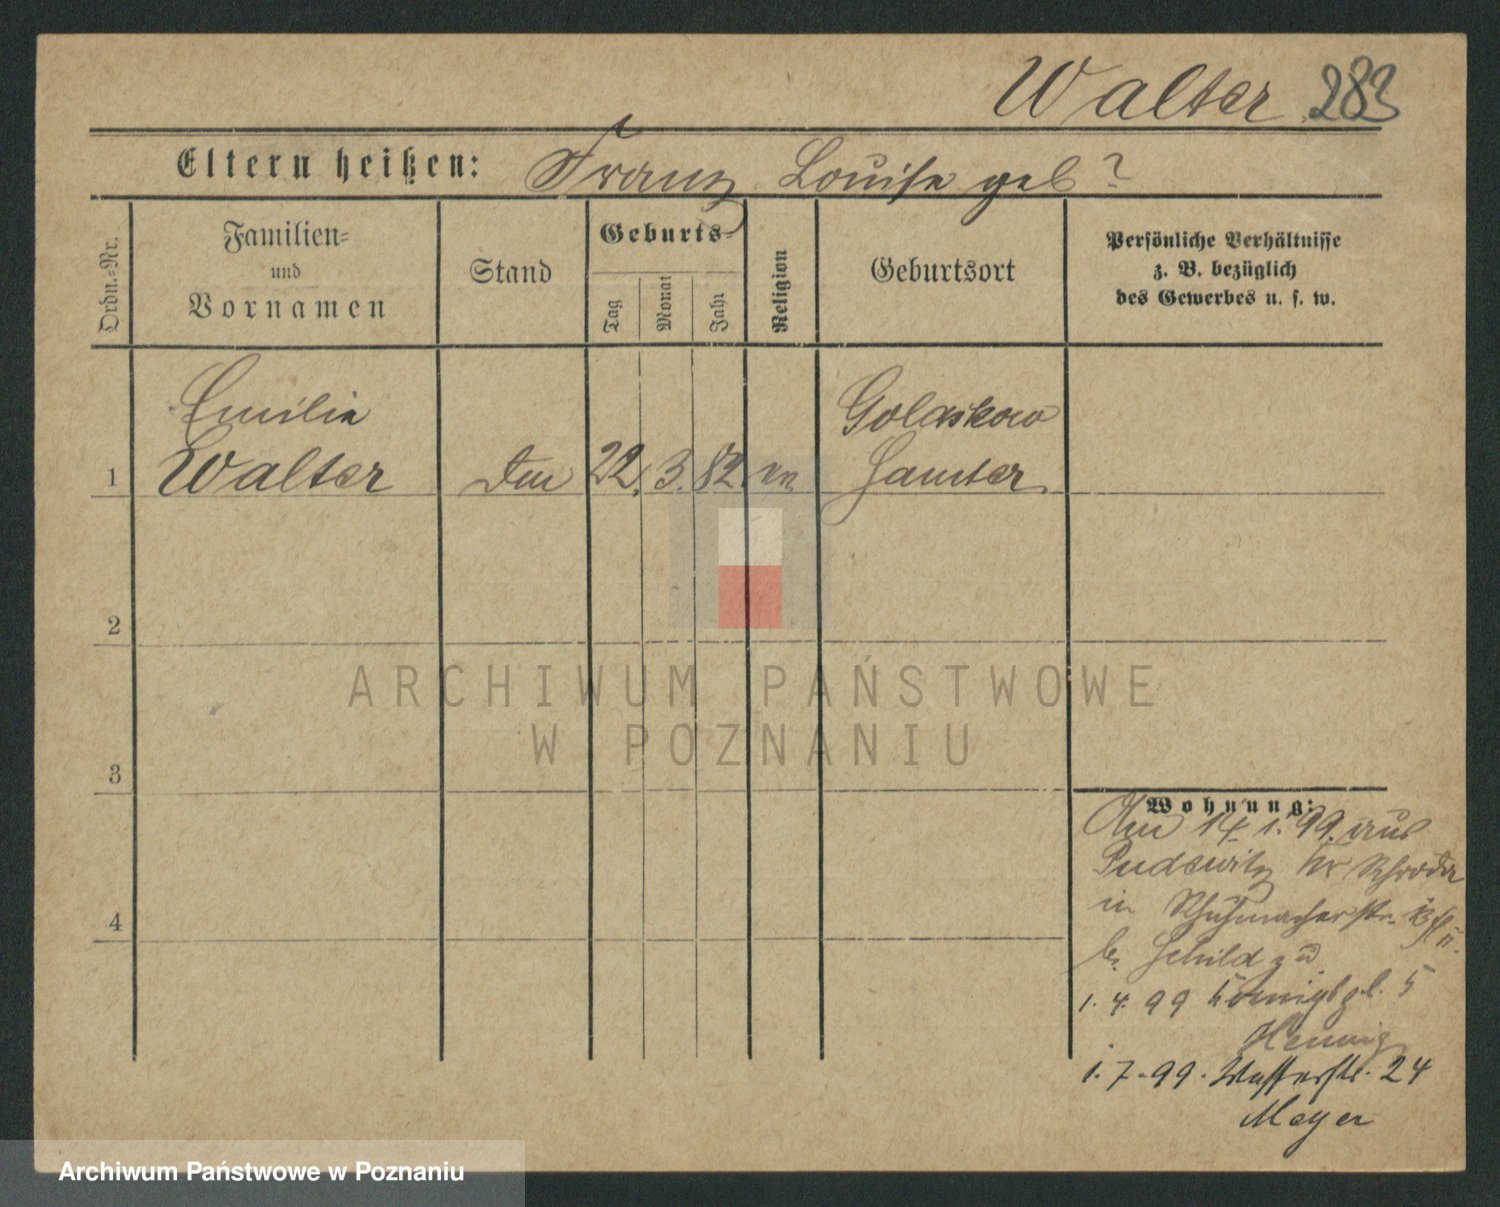 Walter 283
Eltern heißen: Franz Louise geb?
Ordn.-Nr.
Familien-
und
Vornamen
Stand
Geburts-
Tag
Monat
Jahr
Religion
Geburtsort
Persönliche Verhältnisse
z. B. bezüglich
des Gewerbes u. s. w.
Emilie
Walter
1
22. 3. 82
Golaskowo
Samter
2
3
4
Wohnung:
Am 14. 1. 99. aus
Pudewitz
in Schuhmacherstr.
b. Schild
1. 4. 99 Königspl. 5
Hennig
1. 7. 99. Wasserstr. 24
Meyer
ARCHIWUM PAŃSTWOWE
W POZNANIU
Archiwum Państwowe w Poznaniu